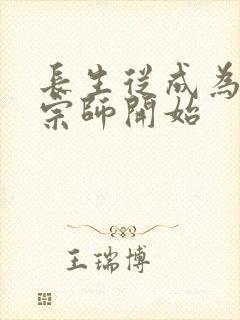 長生從成為
宗師開始
王瑞博